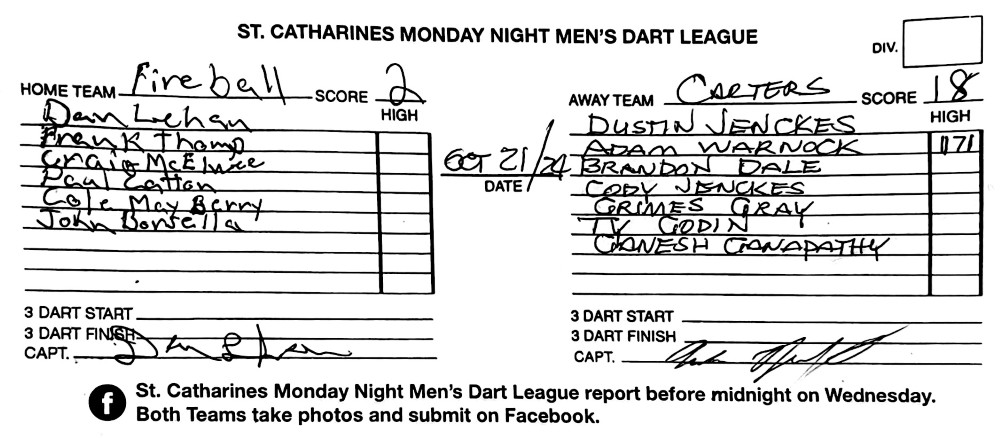 ST. CATHARINES MONDAY NIGHT MEN'S DART LEAGUE
DIV.
HOME TEAM Fireball SCORE 2
HIGH
Dan Lehan
Frank Thomp
Craig McElwee
Paul Eatton
Cole May Berry
John
OCT 21/24
DATE
AWAY TEAM CARTERS SCORE 18
HIGH
DUSTIN JENCKES
ADAM WARNOCK 171
BRANDON DALE
CODY JENCKES
GRIMES GRAY
TY GODIN
GANESH GANAPATHY
3 DART START
3 DART FINISH
CAPT. Dan Lehan
3 DART START
3 DART FINISH
CAPT.
f St. Catharines Monday Night Men's Dart League report before midnight on Wednesday.
Both Teams take photos and submit on Facebook.